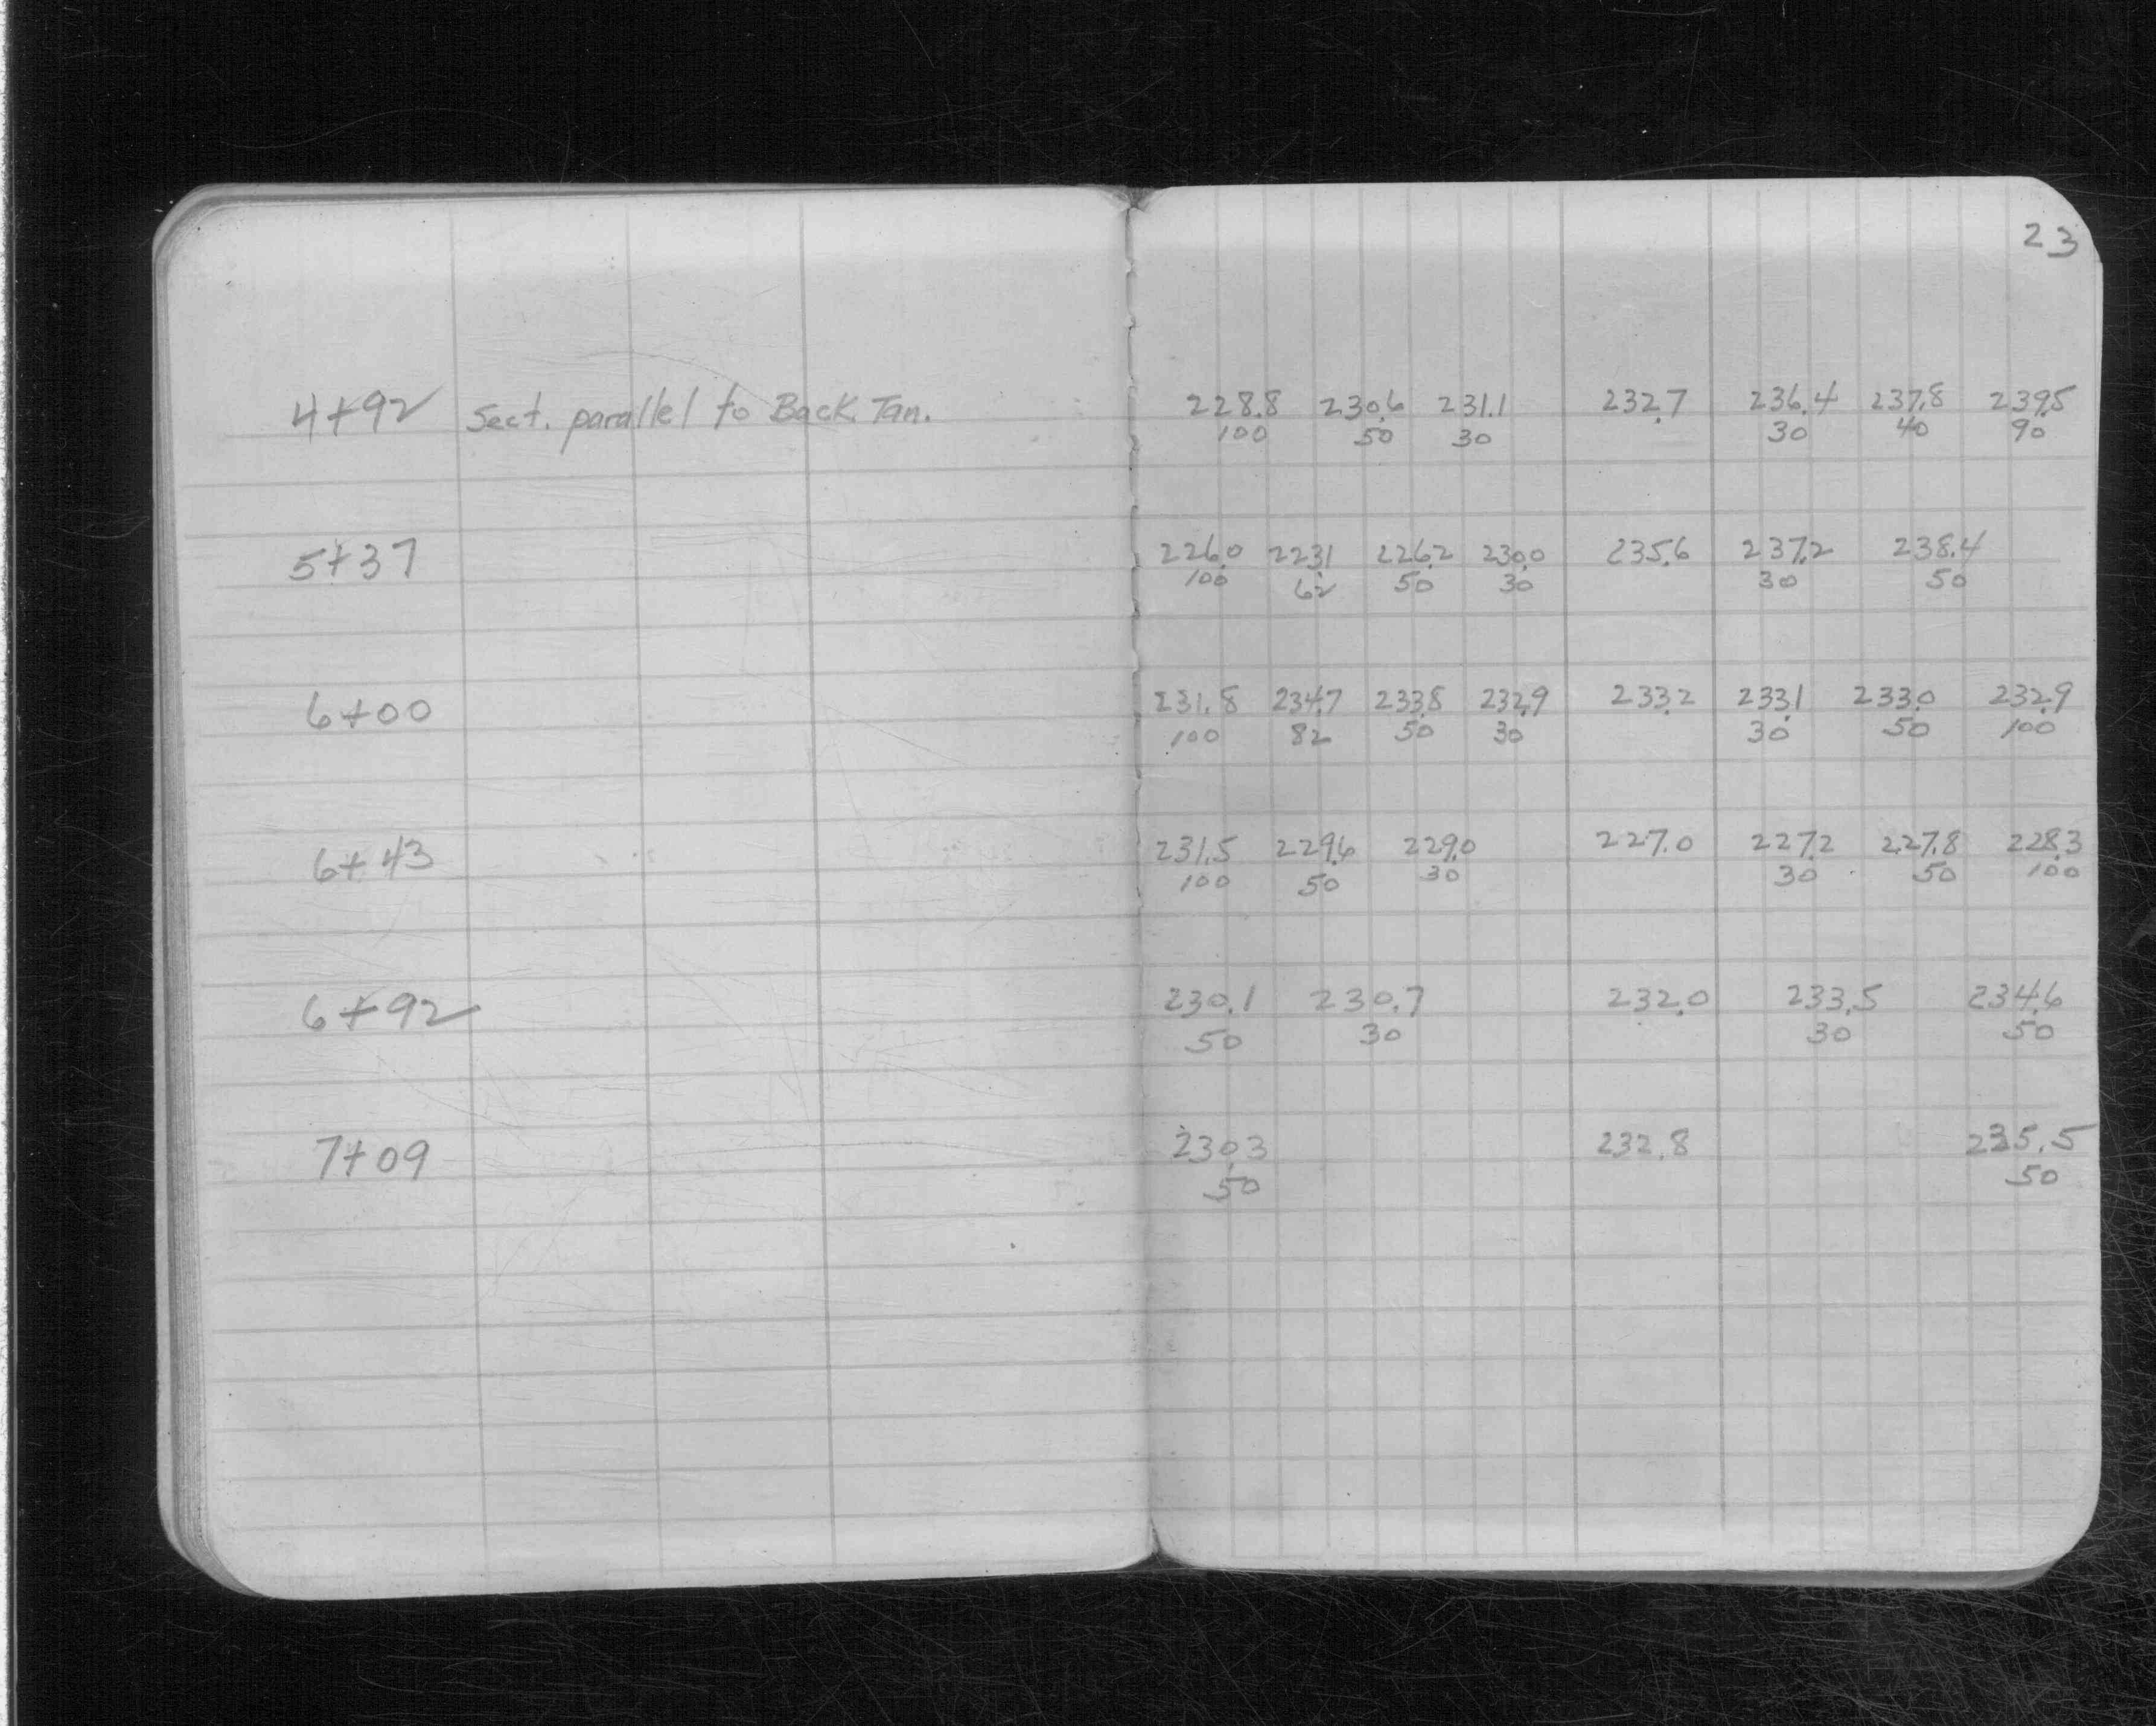 23
4+92 Sect. parallel to Back Tan. 228.8 230.6 231.1 232.7 236.4 237.8 239.5
100 50 30 30 40 90
5+37 226.0 223.1 226.2 230.0 235.6 237.2 238.4
100 62 50 30 30 50
6+00 231.8 234.7 233.8 232.9 233.2 233.1 233.0 232.9
100 82 50 30 30 50 100
6+43 231.5 229.6 229.0 227.0 227.2 227.8 228.3
100 50 30 30 50 100
6+92 230.1 230.7 232.0 233.5 234.6
50 30 30 50
7+09 230.3 232.8 235.5
50 50